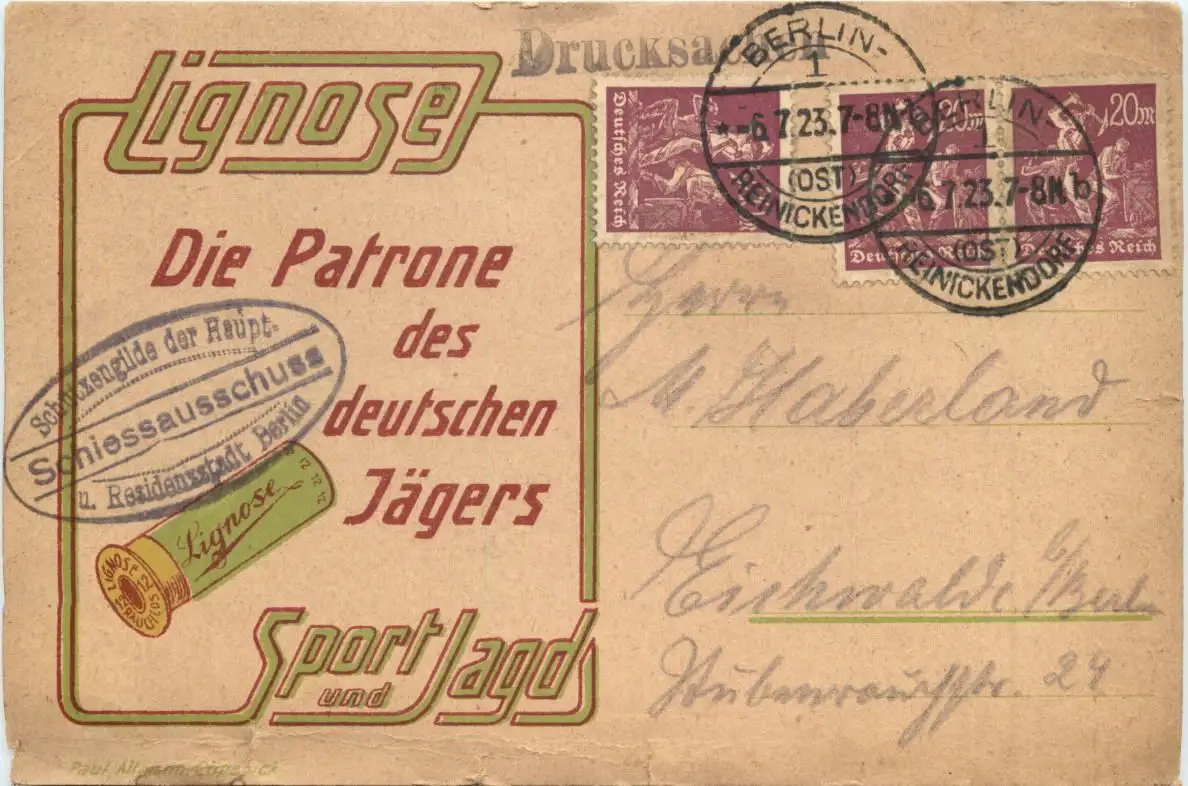 Drucksachen
Lignose
Die Patrone
des
deutschen
Jägers
Schützengilde der Haupt-
Schiessausschuss
u. Residenzstadt Berlin
12 12 12 12
Lignose
LIGNOSE 12
12 RAUCHLOS
Sport
und
Jagd
Deutsches Reich
20m
Deutsches Reich
20m
Deutsches Reich
BERLIN-
1
*-6.7.23.7-8N b
(OST)
REINICKENDORF
BERLIN-
1
-6.7.23.7-8N b
(OST)
REINICKENDORF
Herrn
M. Haberland
Eichwalde b/Berlin
Stubenrauchstr. 24
Paul